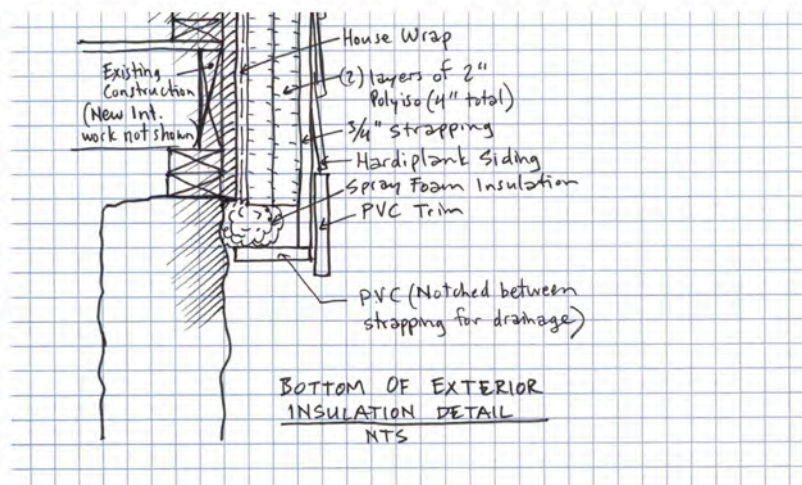 House Wrap
Existing
Construction
(New Int.
work not shown)
(2) layers of 2"
Polyiso (4" total)
3/4" strapping
Hardiplank Siding
Spray Foam Insulation
PVC Trim
PVC (Notched between
strapping for drainage)
BOTTOM OF EXTERIOR
INSULATION DETAIL
NTS